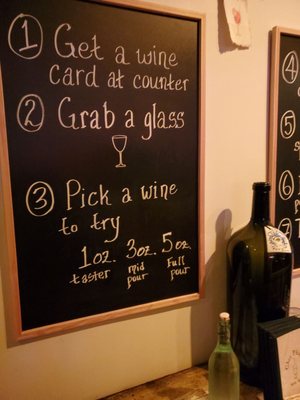 1 Get a wine
card at counter
2 Grab a glass
3 Pick a wine
to try
1oz. 3oz. 5oz.
taster mid pour Full pour
4
5
6
7